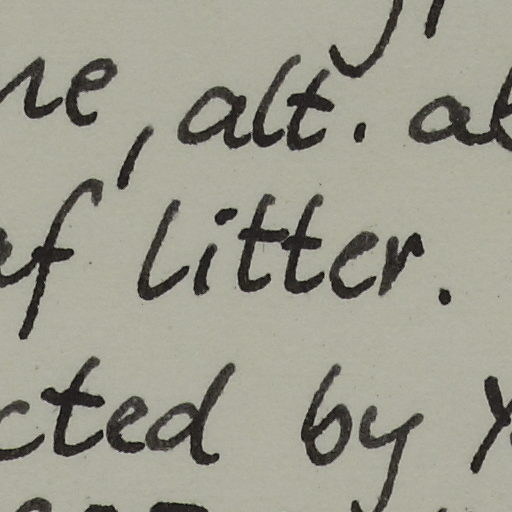 ne, alt. al
af litter.
cted by Y